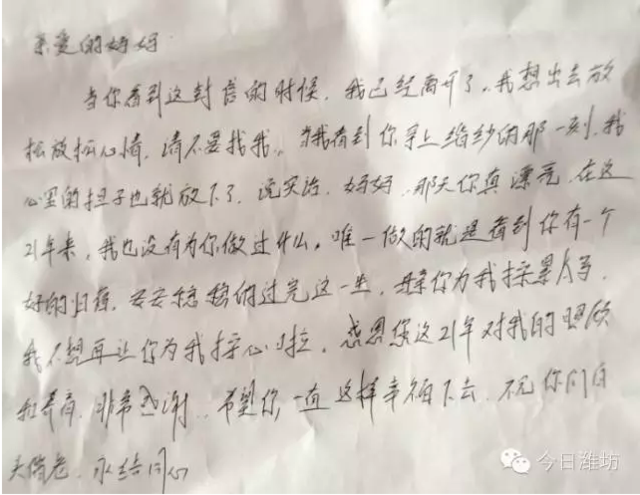 亲爱的妈妈
当你看到这封信的时候，我已经离开了。我想出去放
松放松心情，请不要找我。当我看到你穿上婚纱的那一刻，我
心里的担子也就放下了。说实话，妈妈，那天你真漂亮，在这
21年来，我也没有为你做过什么，唯一做的就是看到你有一个
好的归宿，安安稳稳的过完这一生，你为我操累太多，
我不想再让你为我操心啦。感恩您这21年对我的照顾
和养育，非常感谢，希望你一直这样幸福下去，祝你们白
头偕老，永结同心
今日潍坊